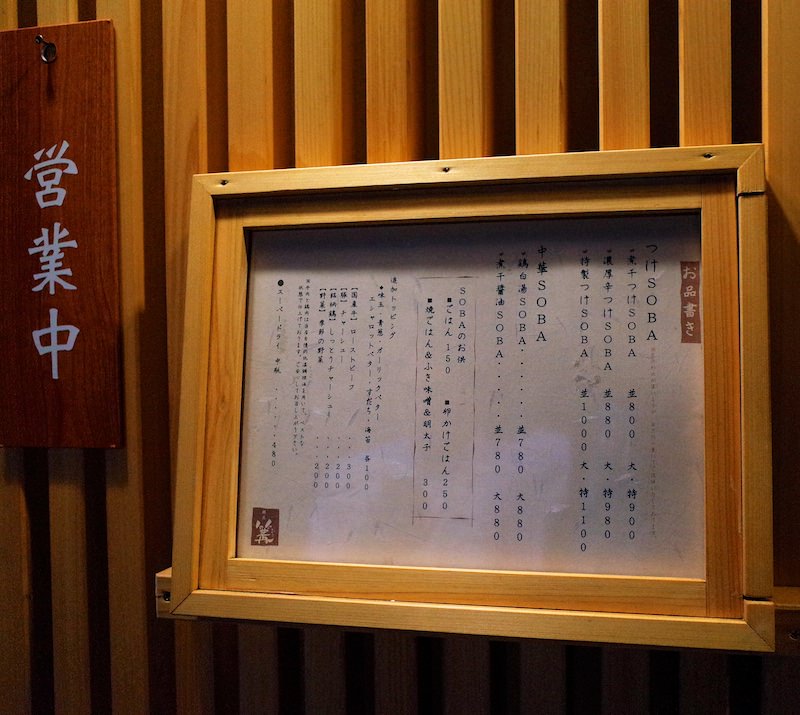 営業中
お品書き
つけSOBA
煮干つけSOBA 並800 大・特900
濃厚辛つけSOBA 並880 大・特980
特製つけSOBA 並1000 大・特1100
中華SOBA
鶏白湯SOBA・・・・・並780 大880
煮干醤油SOBA・・・・並780 大880
SOBAのお供
■ごはん 150 ■卵かけごはん 250
■焼ごはん&ふき味噌&明太子 300
追加トッピング
◆味玉・青葱・ガーリックバター・
エシャロットバター・すだち・海苔 各100
【国産牛】ローストビーフ ・・・300
【豚】チャーシュー ・・・200
【銘柄鶏】しっとりチャーシュー ・・・200
【野菜】季節の野菜 ・・・200
●スーパードライ 中瓶 ・・・・・480
篝